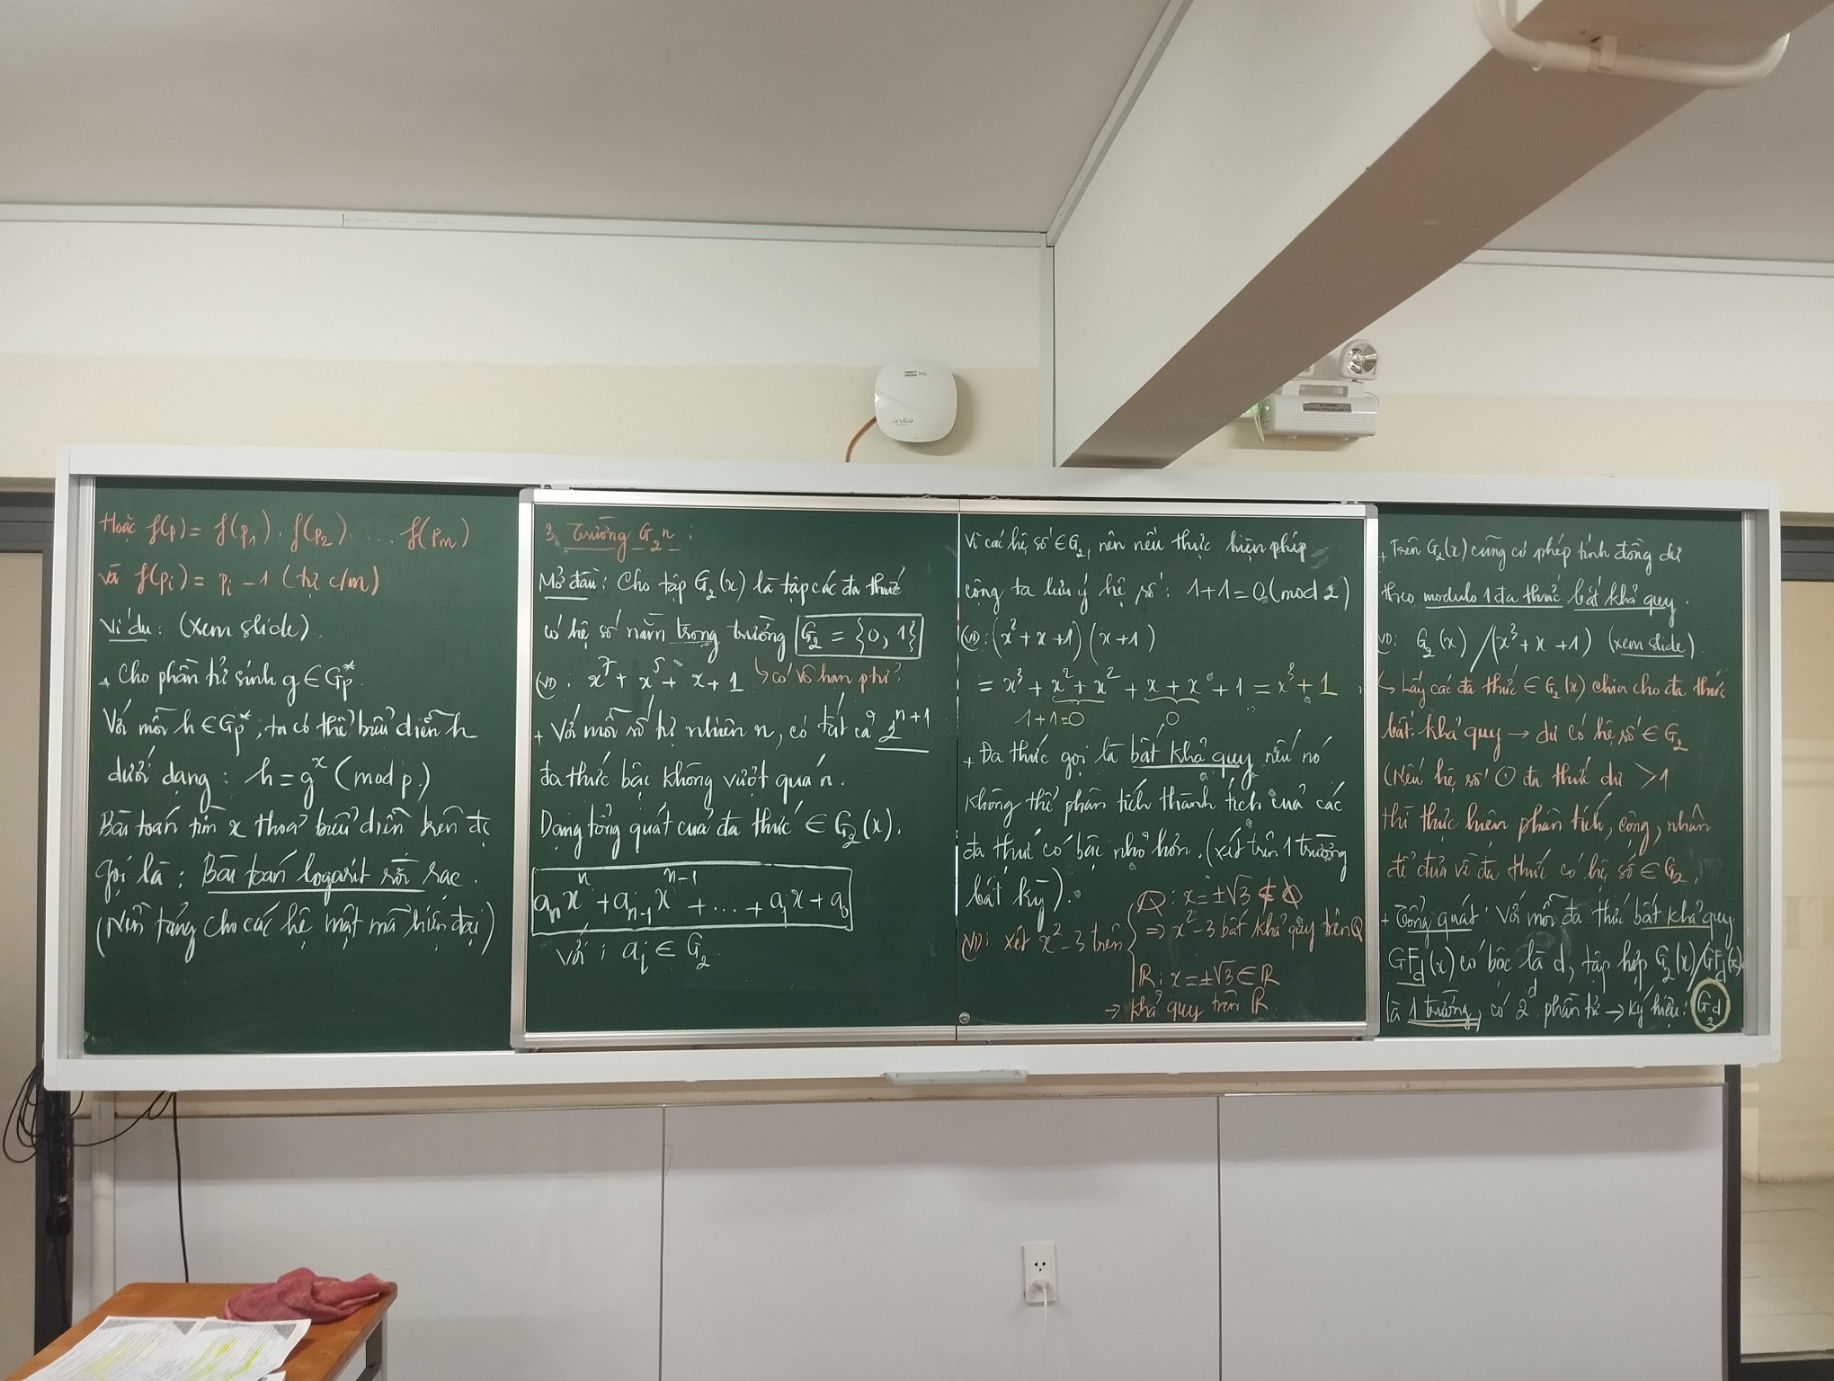 Hoặc f(p) = f(p₁) · f(p₂) .... f(pm)
và f(pi) = pi - 1 (tự c/m)
Ví dụ: (xem slide)
+ Cho phần tử sinh g ∈ Gp*
Với mỗi h ∈ Gp*, ta có thể biểu diễn h
dưới dạng: h = g^x (mod p)
Bài toán tìm x thoả biểu diễn trên đc
gọi là: Bài toán logarit rời rạc.
(Nền tảng cho các hệ mật mã hiện đại)
3. Trường G₂ⁿ:
Mở đầu: Cho tập G₂(x) là tập các đa thức
có hệ số nằm trong trường G₂ = {0, 1}
VD: x⁷ + x⁵ + x + 1 ↳ có vô hạn ptử
+ Với mỗi số tự nhiên n, có tất cả 2^(n+1)
đa thức bậc không vượt quá n.
Dạng tổng quát của đa thức ∈ G₂(x).
aₙxⁿ + aₙ₋₁xⁿ⁻¹ + ... + a₁x + a₀
với: ai ∈ G₂
Vì các hệ số ∈ G₂, nên nếu thực hiện phép
cộng ta lưu ý hệ số: 1+1=0 (mod 2)
VD: (x² + x + 1)(x + 1)
= x³ + x² + x² + x + x + 1 = x³ + 1
1+1=0 0
+ Đa thức gọi là bất khả quy nếu nó
không thể phân tích thành tích của các
đa thức có bậc nhỏ hơn. (xét trên 1 trường
bất kỳ).
VD: xét x² - 3 trên
Q: x = ±√3 ∉ Q
⇒ x² - 3 bất khả quy trên Q
R: x = ±√3 ∈ R
→ khả quy trên R
+ Trên G₂(x) cũng có phép tính đồng dư
theo modulo 1 đa thức bất khả quy.
VD: G₂(x) / (x³ + x + 1) (xem slide)
↳ Lấy các đa thức ∈ G₂(x) chia cho đa thức
bất khả quy → dư có hệ số ∈ G₂
(Nếu hệ số đa thức dư > 1
thì thực hiện phân tích, cộng, nhân
để đưa về đa thức có hệ số ∈ G₂
+ Tổng quát: Với mỗi đa thức bất khả quy
GF_d(x) có bậc là d, tập hợp G₂(x)/GF_d(x)
là 1 trường, có 2^d phần tử → ký hiệu: G₂d
aruba